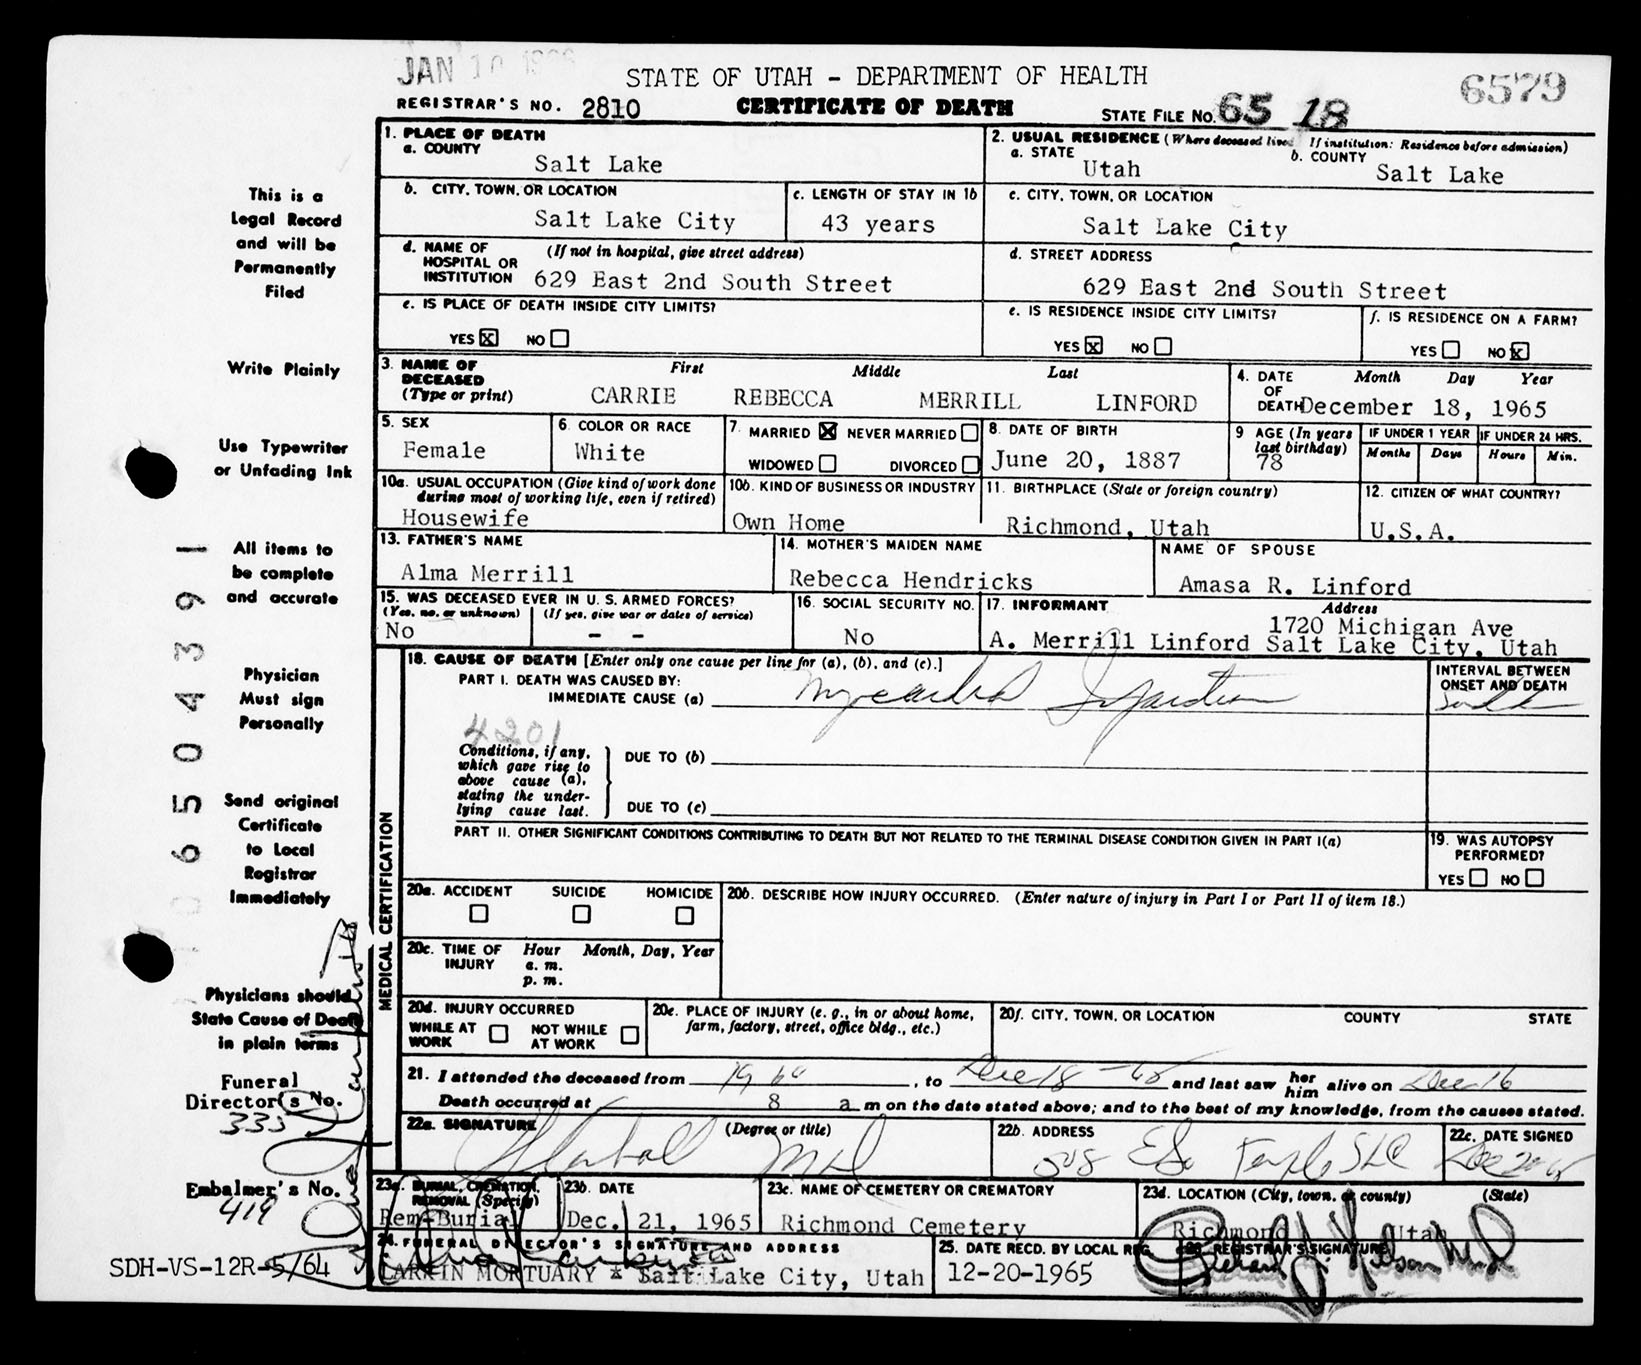 JAN 10
STATE OF UTAH - DEPARTMENT OF HEALTH
6579
REGISTRAR'S NO. 2810 CERTIFICATE OF DEATH STATE FILE NO. 65 18
1. PLACE OF DEATH
a. COUNTY
Salt Lake
2. USUAL RESIDENCE (Where deceased lived If institution: Residence before admission)
a. STATE
Utah
b. COUNTY
Salt Lake
b. CITY, TOWN, OR LOCATION
Salt Lake City
c. LENGTH OF STAY IN 1b
43 years
c. CITY, TOWN, OR LOCATION
Salt Lake City
d. NAME OF (If not in hospital, give street address)
HOSPITAL OR
INSTITUTION 629 East 2nd South Street
d. STREET ADDRESS
629 East 2nd South Street
e. IS PLACE OF DEATH INSIDE CITY LIMITS?
YES X NO
e. IS RESIDENCE INSIDE CITY LIMITS?
YES X NO
f. IS RESIDENCE ON A FARM?
YES NO X
3. NAME OF First Middle Last
DECEASED
(Type or print) CARRIE REBECCA MERRILL LINFORD
4. DATE Month Day Year
OF
DEATH December 18, 1965
5. SEX
Female
6. COLOR OR RACE
White
7. MARRIED X NEVER MARRIED
WIDOWED DIVORCED
8. DATE OF BIRTH
June 20, 1887
9 AGE (In years
last birthday)
78
IF UNDER 1 YEAR
Months Days
IF UNDER 24 HRS.
Hours Min.
10a. USUAL OCCUPATION (Give kind of work done
during most of working life, even if retired)
Housewife
10b. KIND OF BUSINESS OR INDUSTRY
Own Home
11. BIRTHPLACE (State or foreign country)
Richmond, Utah
12. CITIZEN OF WHAT COUNTRY?
U.S.A.
13. FATHER'S NAME
Alma Merrill
14. MOTHER'S MAIDEN NAME
Rebecca Hendricks
NAME OF SPOUSE
Amasa R. Linford
15. WAS DECEASED EVER IN U. S. ARMED FORCES?
(Yes, no, or unknown) (If yes, give war or dates of service)
No - -
16. SOCIAL SECURITY NO.
No
17. INFORMANT Address
1720 Michigan Ave
A. Merrill Linford Salt Lake City, Utah
MEDICAL CERTIFICATION
18. CAUSE OF DEATH [Enter only one cause per line for (a), (b), and (c).]
PART I. DEATH WAS CAUSED BY:
IMMEDIATE CAUSE (a) Myocardial Infarction
INTERVAL BETWEEN
ONSET AND DEATH
4201
Conditions, if any,
which gave rise to
above cause (a),
stating the under-
lying cause last.
DUE TO (b)
DUE TO (c)
PART II. OTHER SIGNIFICANT CONDITIONS CONTRIBUTING TO DEATH BUT NOT RELATED TO THE TERMINAL DISEASE CONDITION GIVEN IN PART I(a)
19. WAS AUTOPSY
PERFORMED?
YES NO
20a. ACCIDENT SUICIDE HOMICIDE
20b. DESCRIBE HOW INJURY OCCURRED. (Enter nature of injury in Part I or Part II of item 18.)
20c. TIME OF Hour Month, Day, Year
INJURY a. m.
p. m.
20d. INJURY OCCURRED
WHILE AT WORK NOT WHILE AT WORK
20e. PLACE OF INJURY (e. g., in or about home,
farm, factory, street, office bldg., etc.)
20f. CITY, TOWN, OR LOCATION COUNTY STATE
21. I attended the deceased from , to Dec 18 - 65 and last saw her him alive on Dec 16
Death occurred at 8 a m on the date stated above; and to the best of my knowledge, from the causes stated.
22a. SIGNATURE (Degree or title)
MD
22b. ADDRESS
508 E So Temple SLC
22c. DATE SIGNED
23a. BURIAL, CREMATION,
REMOVAL (Specify)
Rem-Burial
23b. DATE
Dec. 21, 1965
23c. NAME OF CEMETERY OR CREMATORY
Richmond Cemetery
23d. LOCATION (City, town, or county) (State)
Richmond Utah
24. FUNERAL DIRECTOR'S SIGNATURE AND ADDRESS
LARKIN MORTUARY Salt Lake City, Utah
25. DATE RECD. BY LOCAL REG.
12-20-1965
26. REGISTRAR'S SIGNATURE
This is a
Legal Record
and will be
Permanently
Filed
Write Plainly
Use Typewriter
or Unfading Ink
All items to
be complete
and accurate
Physician
Must sign
Personally
Send original
Certificate
to Local
Registrar
Immediately
Physicians should
State Cause of Death
in plain terms
Funeral
Director's No.
335
Embalmer's No.
419
SDH-VS-12R-5/64
0 6 5 0 4 3 9 1